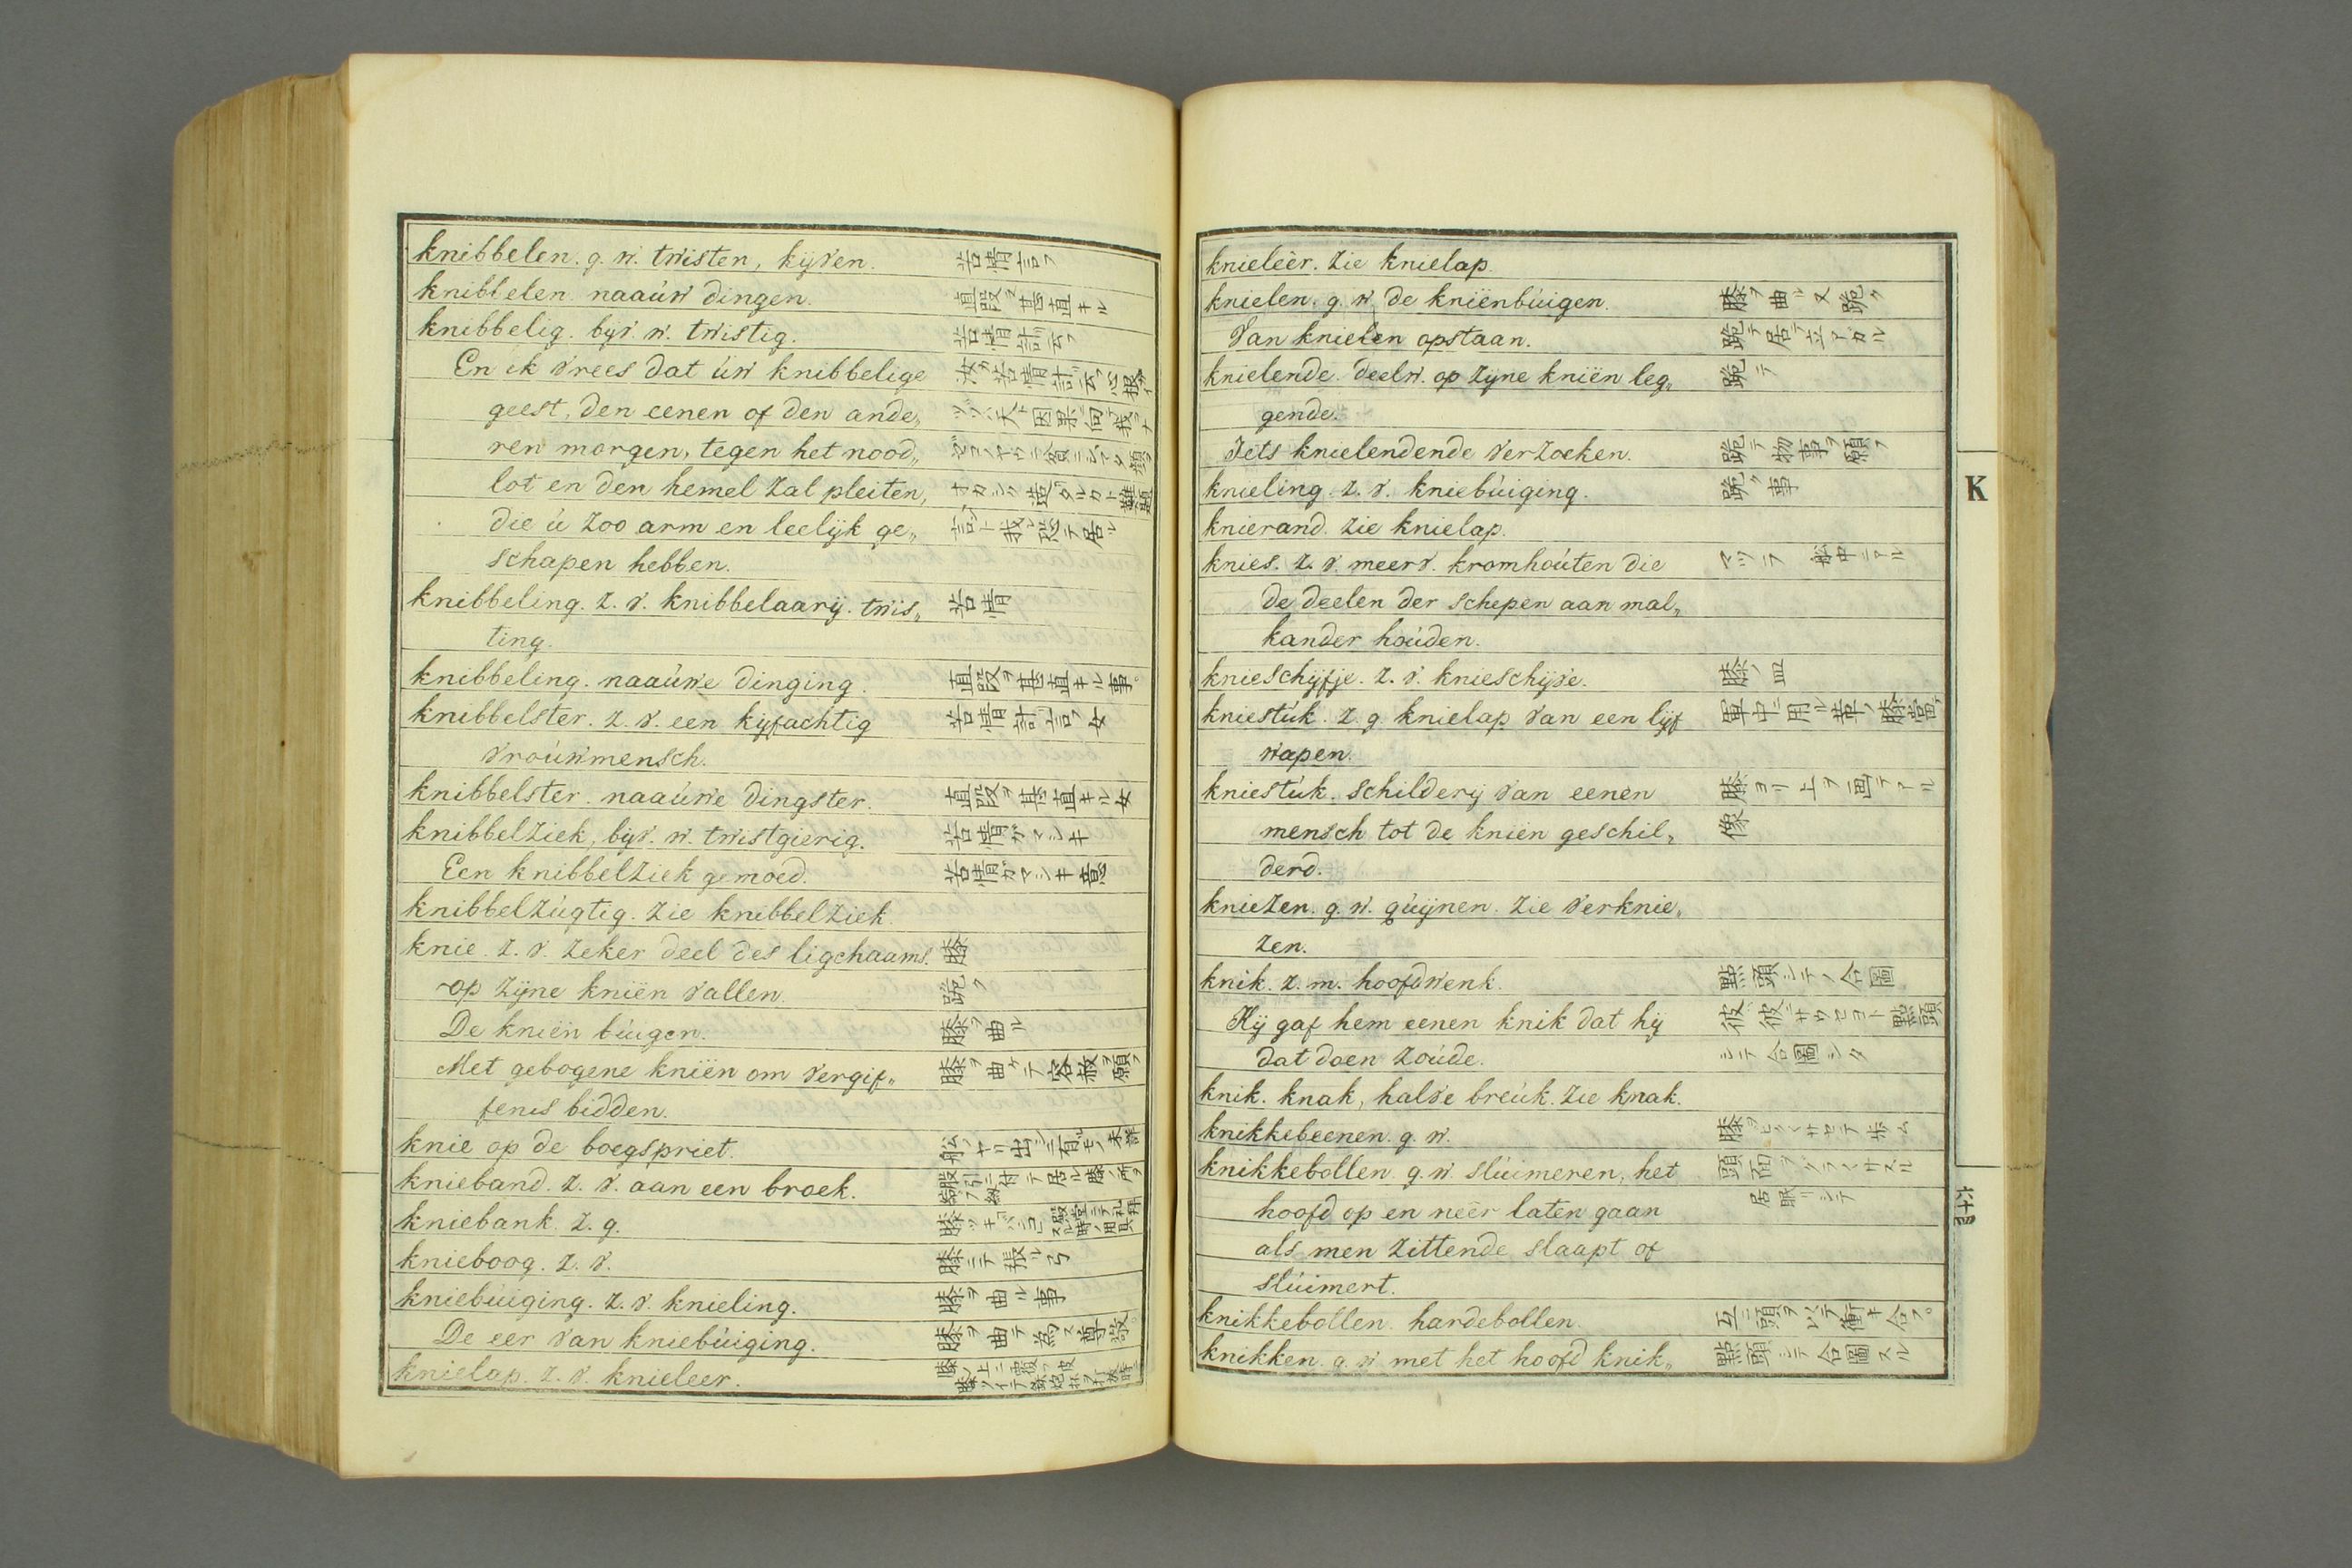 knibbelen. g. w. twisten, kijven. 苦情言フ
knibbelen. naaúw dingen. 直段ヲ甚直キル
knibbelig. bijv. w. twistig. 苦情計云フ
En ik vrees dat úw knibbelige
geest, den eenen of den ande„
ren morgen, tegen het nood„
lot en den hemel zal pleiten,
die ú zoo arm en leelijk ge„
schapen hebben.
knibbeling. z. v. knibbelaarij. twis„ 苦情
ting.
knibbeling. naaúwe dinging. 直段ヲ甚直キル事。
knibbelster. z. v. een kijfachtig 苦情計言フ女
vroúwmensch.
knibbelster. naaúwe dingster. 直段ヲ甚直キル女
knibbelziek, bijv. w. twistgierig. 苦情ガマシキ
Een knibbelziek gemoed. 苦情ガマシキ意
knibbelzúgtig. zie knibbelziek.
knie. z. v. zeker deel des ligchaams. 膝
op zijne kniën vallen. 跪ク
De kniën búigen. 膝ヲ曲ル
Met gebogene kniën om vergif„ 膝ヲ曲ケテ容赦ヲ願フ
fenis bidden.
knie op de boegspriet.
knieband. z. v. aan een broek.
kniebank. z. g.
knieboog. z. v. 膝ニテ張ル弓
kniebúiging. z. v. knieling. 膝ヲ曲ル事
De eer van kniebúiging. 膝ヲ曲テ為ス尊敬。
knielap. z. v. knieleer.
knieleêr. zie knielap.
knielen. g. w. de kniënbúigen. 膝ヲ曲ル又跪ク
Van knielen opstaan. 跪テ居テ立アガル
knielende. deelw. op zijne kniën leg„ 跪テ
gende.
Iets knielendende verzoeken. 跪テ物事ヲ願フ
knieling. z. v. kniebúiging. 跪ク事
knierand. zie knielap.
knies. z. v. meerv. kromhoúten die マツラ 船中ニアル
de deelen der schepen aan mal„
kander hoúden.
knieschijfje. z. v. knieschijve. 膝ノ皿
kniestúk. z. g. knielap van een lijf 軍中ニ用ル革ノ膝當
wapen.
kniestúk. schilderij van eenen 膝ヨリ上ヲ画テアル
mensch tot de kniën geschil„ 像
derd.
kniezen. g. w. qúijnen. zie verknie„
zen.
knik. z. m. hoofdwenk. 點頭シテノ合圖
Hij gaf hem eenen knik dat hij
dat doen zoúde. シテ合圖シタ
knik. knak, halve breúk. zie knak.
knikkebeenen. g. w.
knikkebollen. g. w. slúimeren, het
hoofd op en neêr laten gaan 居眠リシテ
als men zittende slaapt of
slúimert.
knikkebollen. hardebollen. 互ニ頭ヲ以テ衝キ合フ。
knikken. g. w. met het hoofd knik„ 點頭シテ合圖スル
K